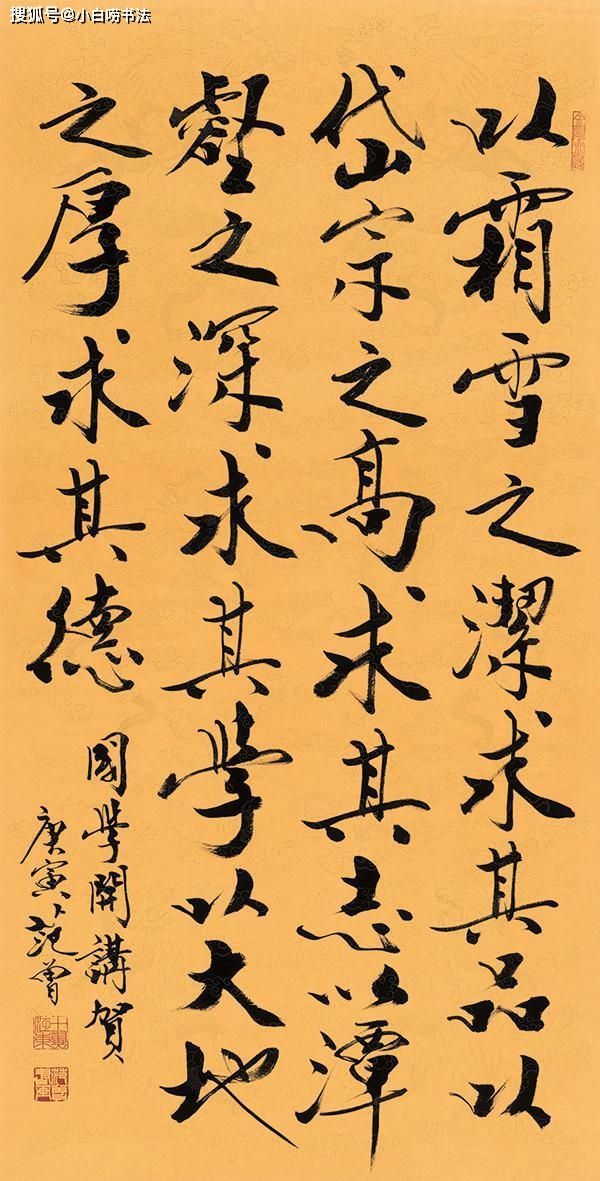 搜狐号@小白唠书法
以霜雪之潔求其品以
岱宗之高求其志以潭
壑之深求其學以大地
之厚求其德
國學開講賀
庚寅 范曾